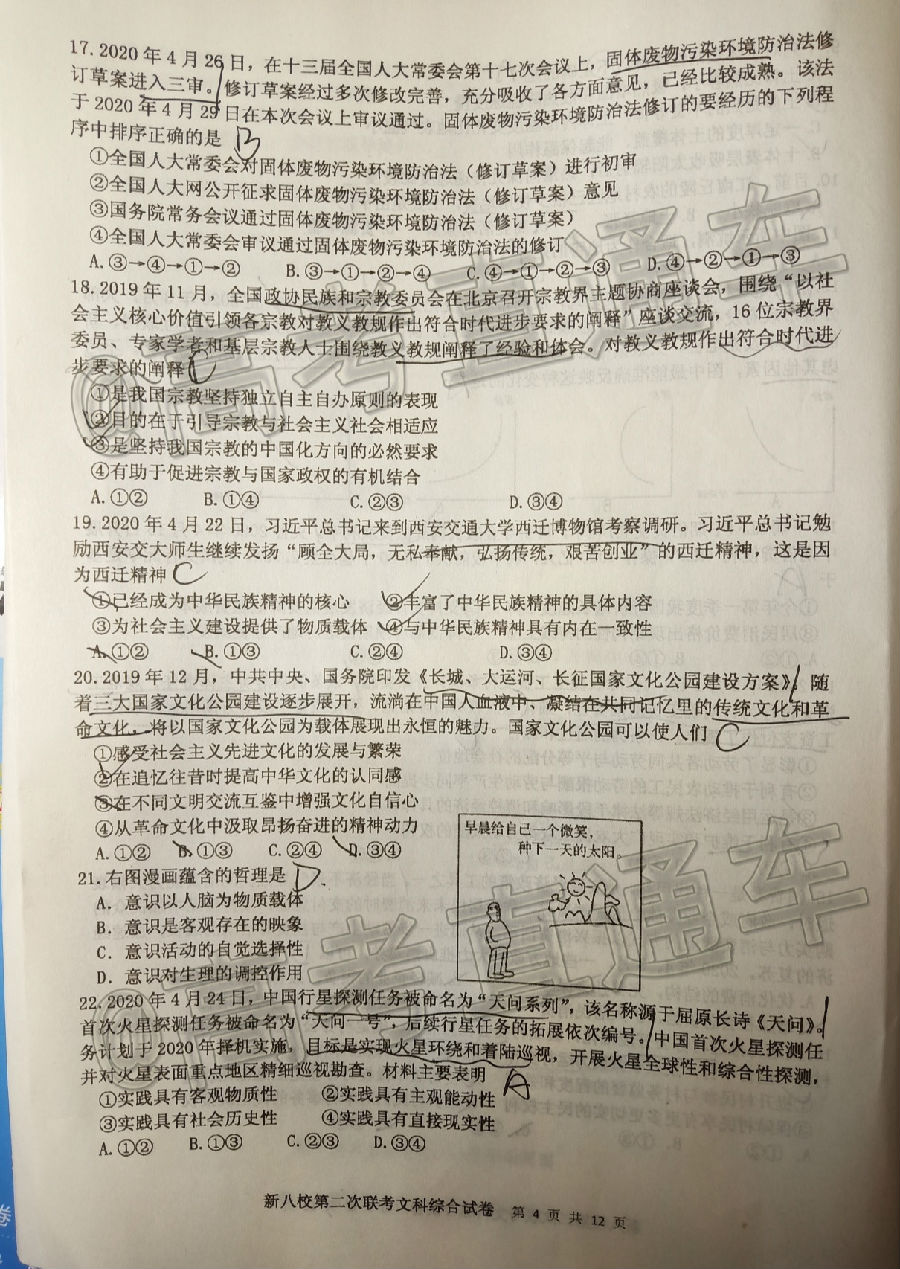 17. 2020 年 4 月 26 日，在十三届全国人大常委会第十七次会议上，固体废物污染环境防治法修
订草案进入三审。修订草案经过多次修改完善，充分吸收了各方面意见，已经比较成熟。该法
于 2020 年 4 月 29 日在本次会议上审议通过。固体废物污染环境防治法修订的要经历的下列程
序中排序正确的是 B
①全国人大常委会对固体废物污染环境防治法（修订草案）进行初审
②全国人大网公开征求固体废物污染环境防治法（修订草案）意见
③国务院常务会议通过固体废物污染环境防治法（修订草案）
④全国人大常委会审议通过固体废物污染环境防治法的修订
A. ③→④→①→② B. ③→①→②→④ C. ④→①→②→③ D. ④→②→①→③
18. 2019 年 11 月，全国政协民族和宗教委员会在北京召开宗教界主题协商座谈会，围绕“以社
会主义核心价值引领各宗教对教义教规作出符合时代进步要求的阐释”座谈交流，16 位宗教界
委员、专家学者和基层宗教人士围绕教义教规阐释了经验和体会。对教义教规作出符合时代进
步要求的阐释 C
①是我国宗教坚持独立自主自办原则的表现
②目的在于引导宗教与社会主义社会相适应
③是坚持我国宗教的中国化方向的必然要求
④有助于促进宗教与国家政权的有机结合
A. ①② B. ①④ C. ②③ D. ③④
19. 2020 年 4 月 22 日，习近平总书记来到西安交通大学西迁博物馆考察调研。习近平总书记勉
励西安交大师生继续发扬“顾全大局，无私奉献，弘扬传统，艰苦创业”的西迁精神，这是因
为西迁精神 C
①已经成为中华民族精神的核心 ②丰富了中华民族精神的具体内容
③为社会主义建设提供了物质载体 ④与中华民族精神具有内在一致性
A. ①② B. ①③ C. ②④ D. ③④
20. 2019 年 12 月，中共中央、国务院印发《长城、大运河、长征国家文化公园建设方案》，随
着三大国家文化公园建设逐步展开，流淌在中国人血液中、凝结在共同记忆里的传统文化和革
命文化，将以国家文化公园为载体展现出永恒的魅力。国家文化公园可以使人们 C
①感受社会主义先进文化的发展与繁荣
②在追忆往昔时提高中华文化的认同感
③在不同文明交流互鉴中增强文化自信心
④从革命文化中汲取昂扬奋进的精神动力
A. ①② B. ①③ C. ②④ D. ③④
早晨给自己一个微笑，
种下一天的太阳。
21. 右图漫画蕴含的哲理是 D
A. 意识以人脑为物质载体
B. 意识是客观存在的映象
C. 意识活动的自觉选择性
D. 意识对生理的调控作用
22. 2020 年 4 月 24 日，中国行星探测任务被命名为“天问系列”，该名称源于屈原长诗《天问》。
首次火星探测任务被命名为“天问一号”，后续行星任务的拓展依次编号。中国首次火星探测任
务计划于 2020 年择机实施，目标是实现火星环绕和着陆巡视，开展火星全球性和综合性探测，
并对火星表面重点地区精细巡视勘查。材料主要表明 A
①实践具有客观物质性 ②实践具有主观能动性
③实践具有社会历史性 ④实践具有直接现实性
A. ①② B. ①③ C. ②③ D. ③④
新八校第二次联考文科综合试卷 第 4 页 共 12 页
@高考直通车
@高考直通车